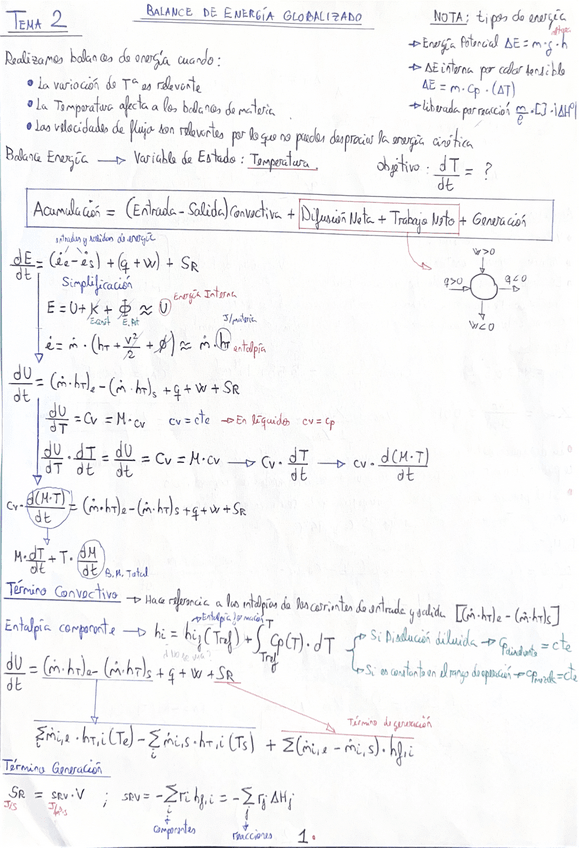 TEMA 2
BALANCE DE ENERGÍA GLOBALIZADO
NOTA: tipos de energía
→ Energía Potencial ΔE = m·g·h
→ ΔE interna por calor sensible
ΔE = m·cp·(ΔT)
→ liberada por reacción
Realizamos balances de energía cuando:
• La variación de Tª es relevante
• La Temperatura afecta a los balances de materia
• Las velocidades de flujo son relevantes por lo que no puedes despreciar la energía cinética
Balance Energía → Variable de Estado: Temperatura. objetivo: dT/dt = ?
Acumulación = (Entrada - Salida) convectiva + Difusión Neta + Trabajo Neto + Generación
entradas y salidas de energía
dE/dt = (ėe - ės) + (q + W) + SR
W>0
q>0 q<0
W<0
Simplificación
E = U + K + Φ ≈ U Energía Interna
E.cinét E.Pot
J/materia
ė = ṁ·(hT + v²/2 + φ) ≈ ṁ·hT entalpía
dU/dt = (ṁ·hT)e - (ṁ·hT)s + q + W + SR
dU/dT = Cv = M·cv cv = cte → En líquidos cv = cp
dU/dT · dT/dt = dU/dt = Cv = M·cv → Cv·dT/dt → cv·d(M·T)/dt
cv·d(M·T)/dt = (ṁ·hT)e - (ṁ·hT)s + q + W + SR
M·dT/dt + T·dM/dt B.M. Total
Término Convectivo → Hace referencia a las entalpías de las corrientes de entrada y salida [(ṁ·hT)e - (ṁ·hT)s]
Entalpía formación
Entalpía componente → hi = hif(Tref) + ∫Tref^T Cp(T)·dT
→ Si Disolución diluida → cp = cte
→ Si es constante en el rango de operación → cp = cte
dU/dt = (ṁ·hT)e - (ṁ·hT)s + q + W + SR
Término de generación
Σi ṁi,e·hT,i(Te) - Σi ṁi,s·hT,i(Ts) + Σ(ṁi,e - ṁi,s)·hf,i
Término Generación
SR = SRV·V ; SRV = -Σi ri hf,i = -Σj rj ΔHj
J/s
componentes reacciones
1.